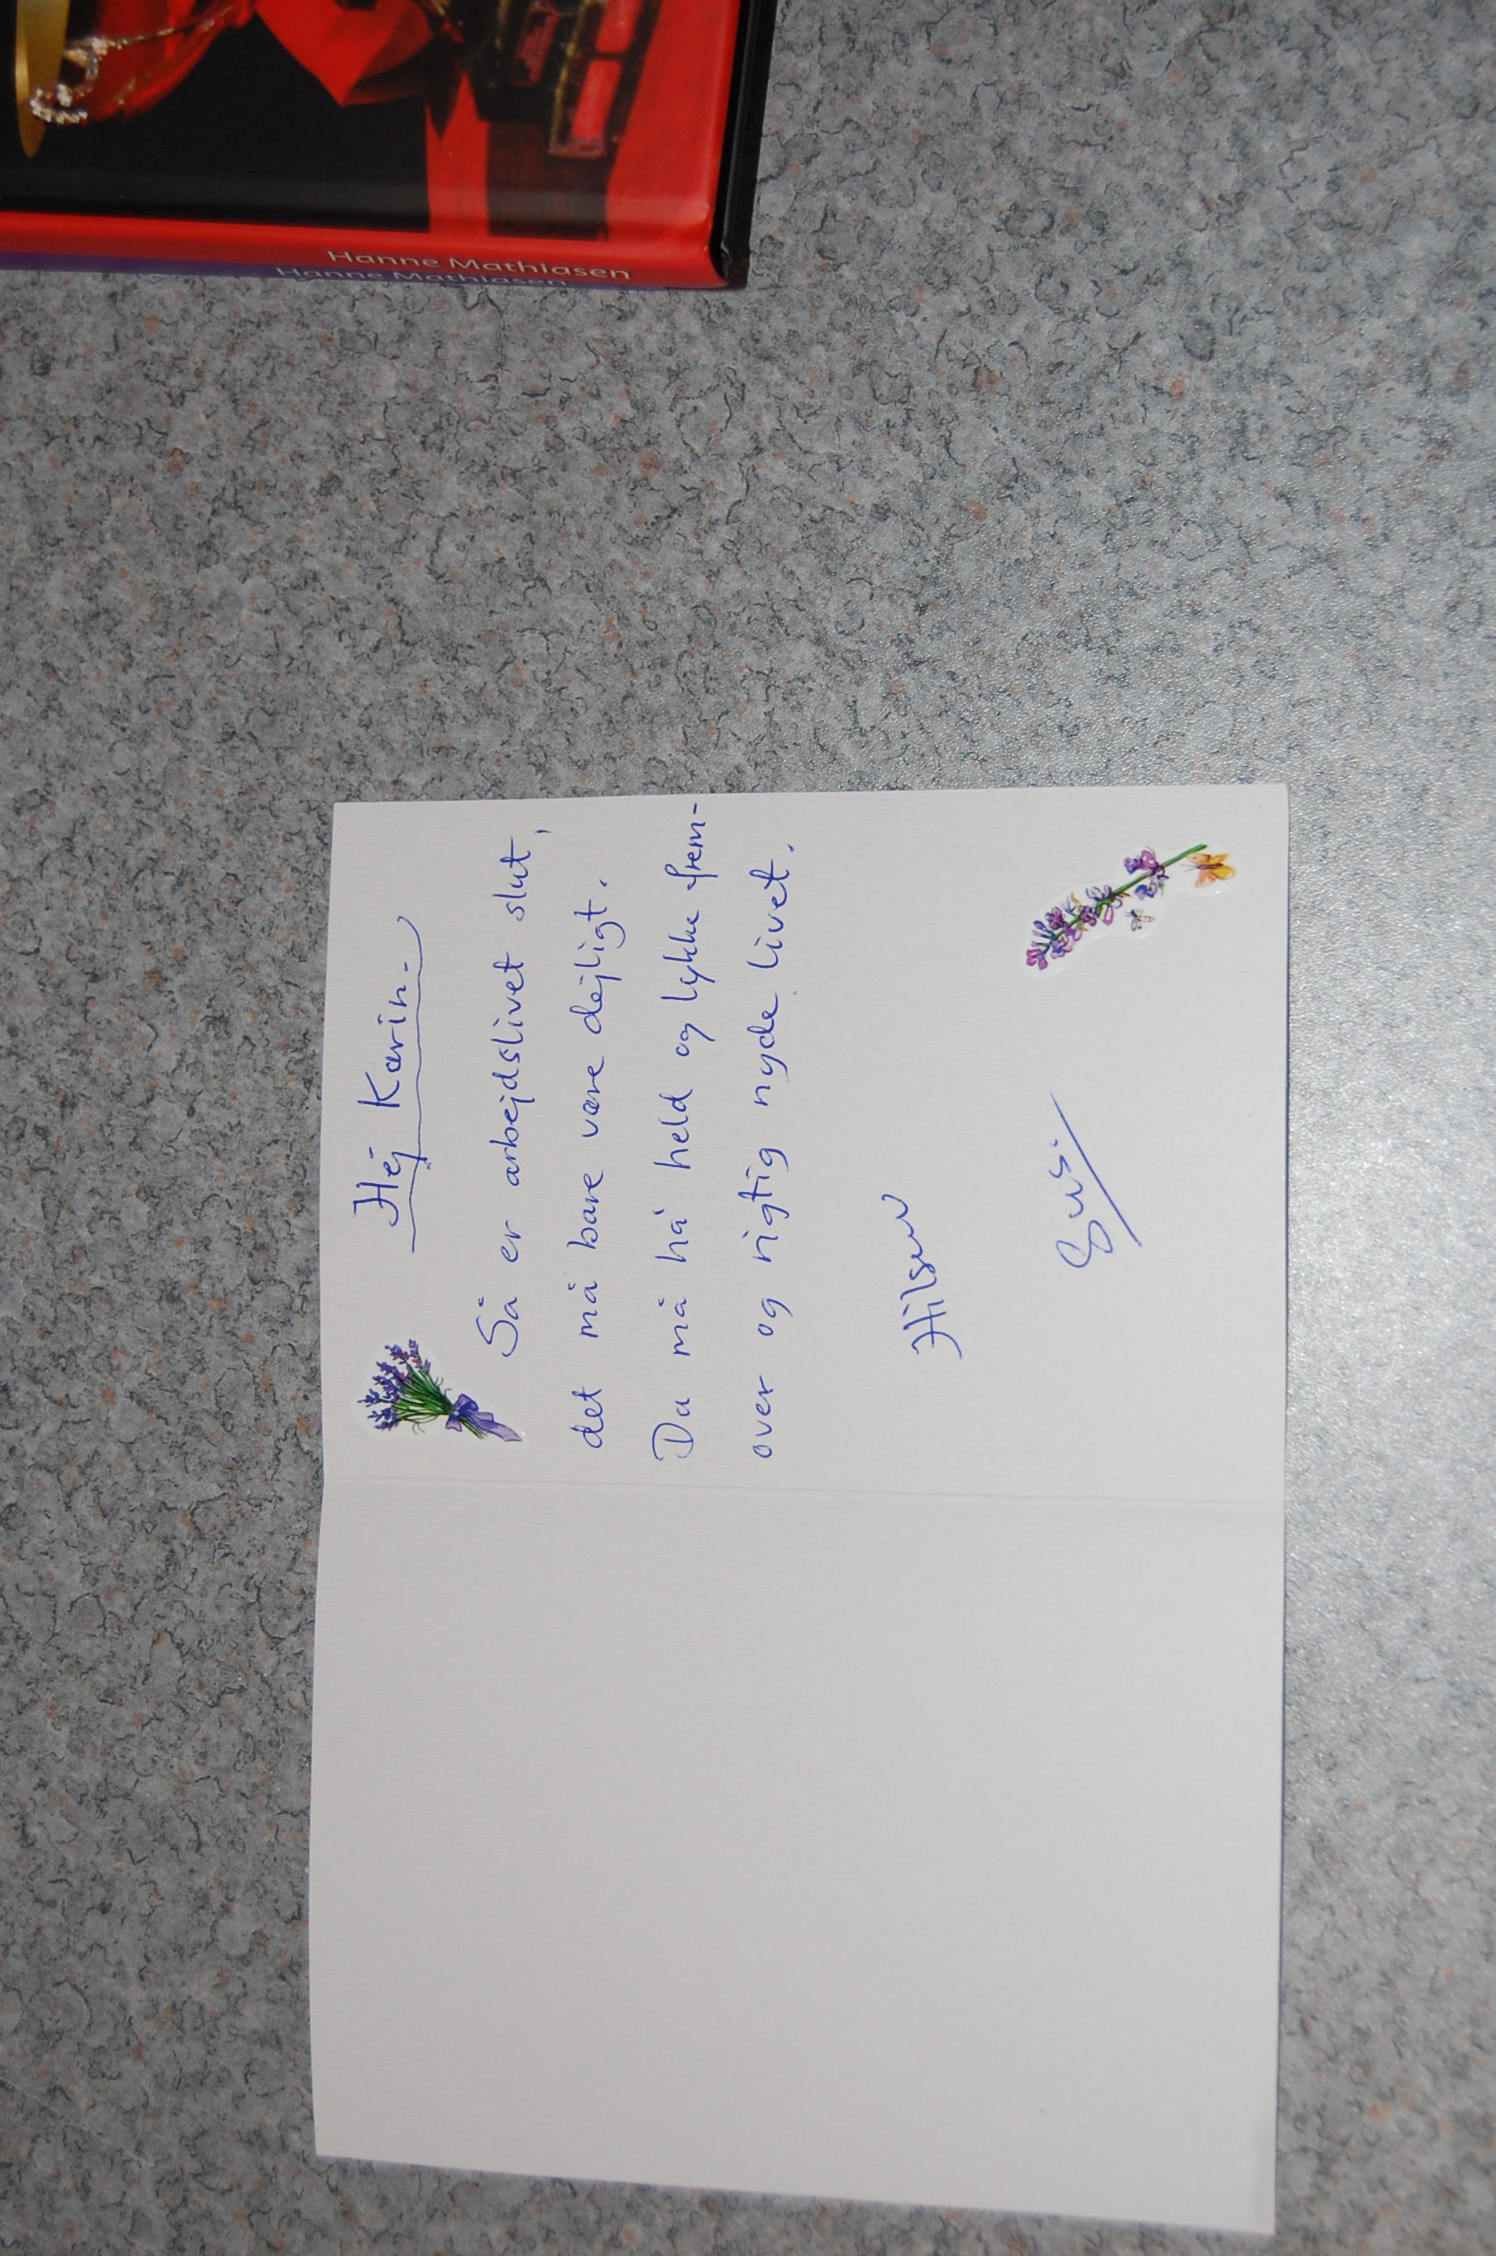 Hanne Mathiasen
Hanne Mathiasen
Hej Karin.
Så er arbejdslivet slut,
det må bare være dejligt.
Du må há held og lykke frem-
over og rigtig nyde livet.
Hilsen
Susi